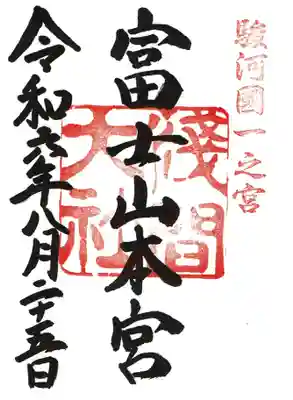 駿河國一之宮
富士山本宮
淺間
大社
令和六年八月二十五日